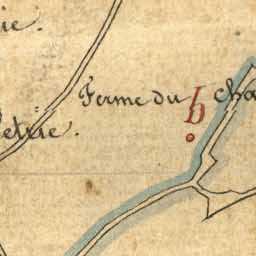 ie.
Ferme du b cha
etrie.